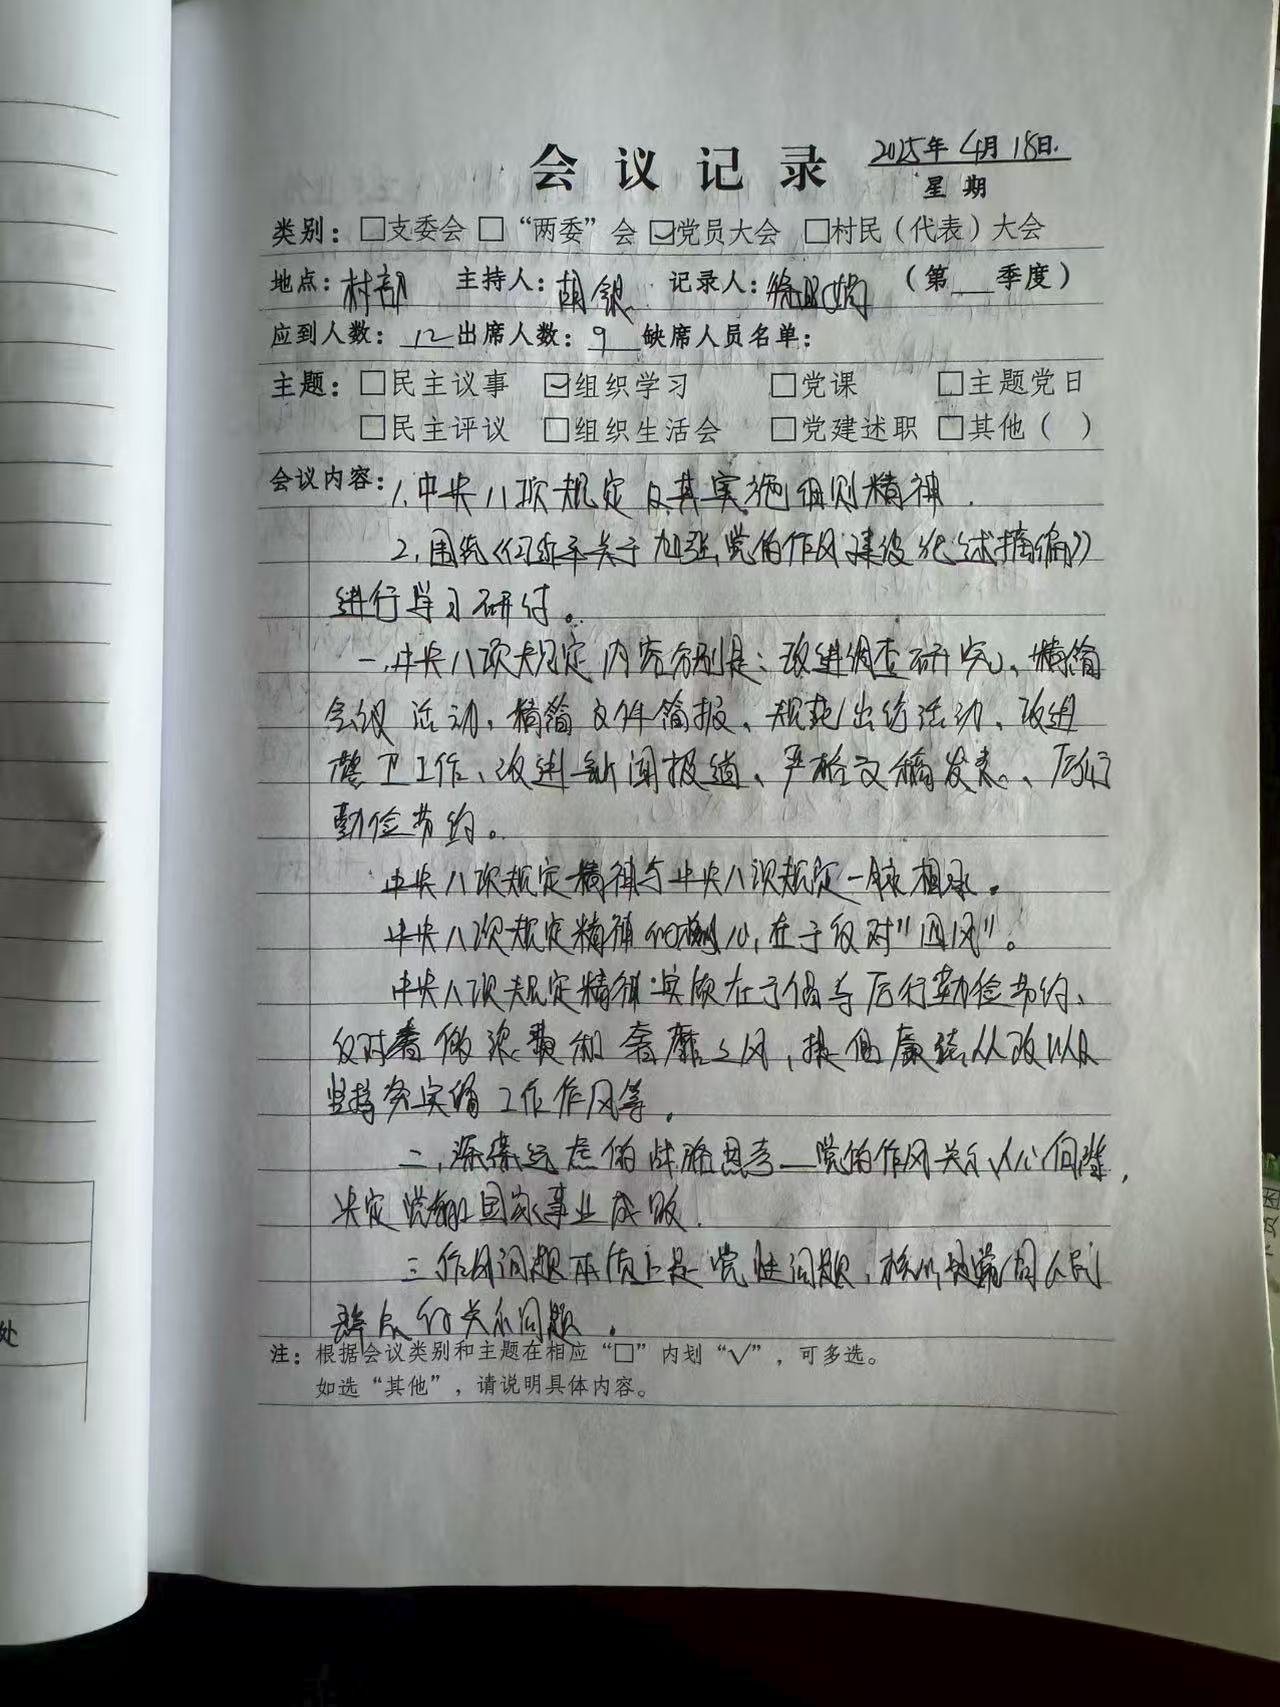 会议记录 2025年4月18日.
星期
类别：□支委会 □“两委”会 ☑党员大会 □村民（代表）大会
地点：村部 主持人：胡银 记录人： （第___季度）
应到人数：12 出席人数：9 缺席人员名单：
主题：□民主议事 ☑组织学习 □党课 □主题党日
□民主评议 □组织生活会 □党建述职 □其他（ ）
会议内容：1.中央八项规定及其实施细则精神.
2.围绕《习近平关于加强党的作风建设论述摘编》
进行学习研讨。
一、中央八项规定内容分别是：改进调查研究、精简
会议活动、精简文件简报、规范出访活动、改进
警卫工作、改进新闻报道、严格文稿发表、厉行
勤俭节约。
中央八项规定精神与中央八项规定一脉相承。
中央八项规定精神的核心,在于反对“四风”。
中央八项规定精神实质在于倡导厉行勤俭节约、
反对 浪费和奢靡之风，提倡廉洁从政以及
坚持务实的工作作风等。
二、深谋远虑的战略思考—党的作风关系人心向背，
决定党和国家事业成败.
三作风问题本质上是党性问题，核心是党同人民
群众的关系问题。
注：根据会议类别和主题在相应“□”内划“√”，可多选。
如选“其他”，请说明具体内容。
处